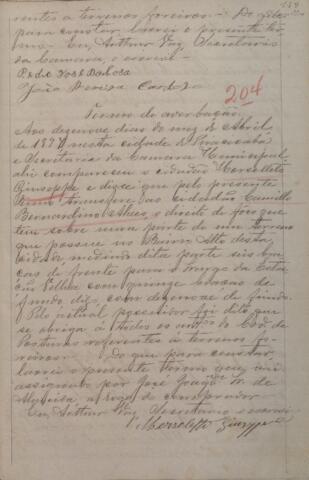 rentes a terrenos foreiros. Do
para constar lavrei o presente ter-
mo. Eu, Arthur Vaz, Secretario
da Camara, o escrevi.
Pedro José Barbosa
João Pereira Cardozo
204
Termo de averbação
Aos dezenove dias do mez de Abril
de 1897 nesta cidade de Piracicaba
e Secretaria da Camara Municipal
ahi compareceu o cidadão Morsoletto
Giuseppe e disse que pelo presente
termo transfere ao cidadão Camillo
Bernardino Alves o direito de foro que
tem sobre uma parte de um terreno
que possue no Bairro Alto desta
cidade medindo dita parte seis bra-
ças de frente para o largo da Esta-
ção Velha com quinze braças de
fundo, digo, com dezenove de fundo.
Pelo actual possuidor foi dito que
se obriga á todos os Cod. de
Posturas referentes á terrenos fo-
reiros. Do que para constar,
lavrei o presente termo que vai
assignado por José M. de
Almeida a rogo do comprador
Eu, Arthur Vaz Secretario o escrevi
Giuseppe